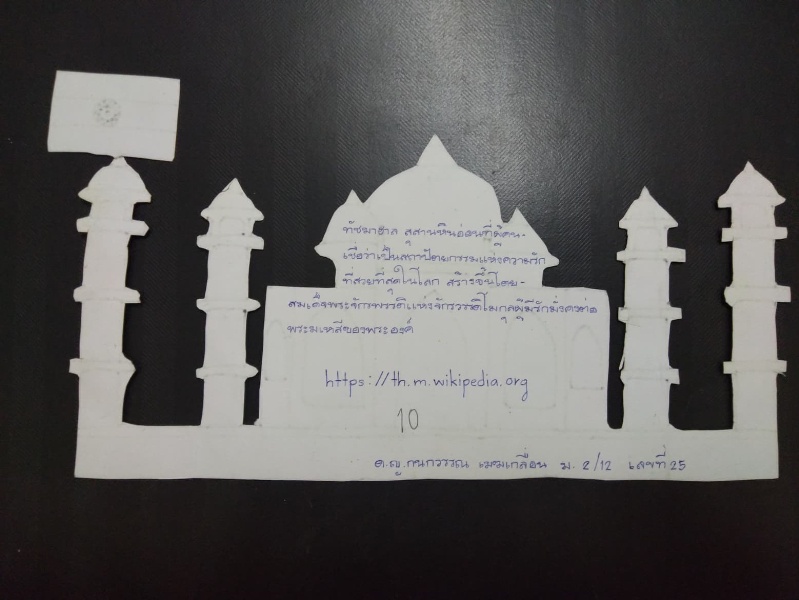 ทัชมาฮาล สุสานหินอ่อนที่ผู้คน-
เชื่อว่าเป็นสถาปัตยกรรมแห่งความรัก
ที่สวยที่สุดในโลก สร้างขึ้นโดย-
สมเด็จพระจักรพรรดิแห่งจักรวรรดิโมกุลผู้มีรักมั่งคงต่อ
พระมเหสีของพระองค์
https://th.m.wikipedia.org
10
ด.ญ.กนกวรรณ ม. 2/12 เลขที่ 25